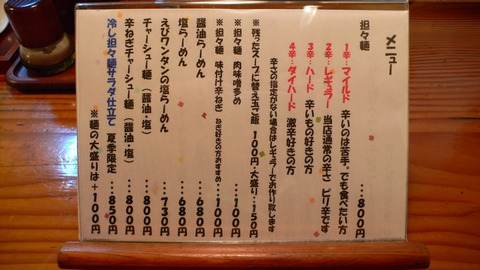 メニュー
担々麺 ・・・800円
1辛・マイルド 辛いのは苦手。でも食べたい方
2辛・レギュラー 当店通常の辛さ ピリ辛です
3辛・ハード 辛いもの好きの方
4辛・ダイハード 激辛好きの方
辛さの指定がない場合はレギュラーでお作り致します
※残ったスープに替え玉ご飯 100円・大盛り・150円
※担々麺 肉味噌多め ・・・100円
※担々麺 味付け辛ネギ ねぎ好きの方おすすめ・・・100円
醤油らーめん ・・・680円
塩らーめん ・・・680円
えびワンタンの塩らーめん ・・・730円
チャーシュー麺(醤油・塩) ・・・800円
辛ねぎチャーシュー麺(醤油・塩) ・・・800円
冷し担々麺サラダ仕立て 夏季限定 ・・・850円
※麺の大盛りは+100円